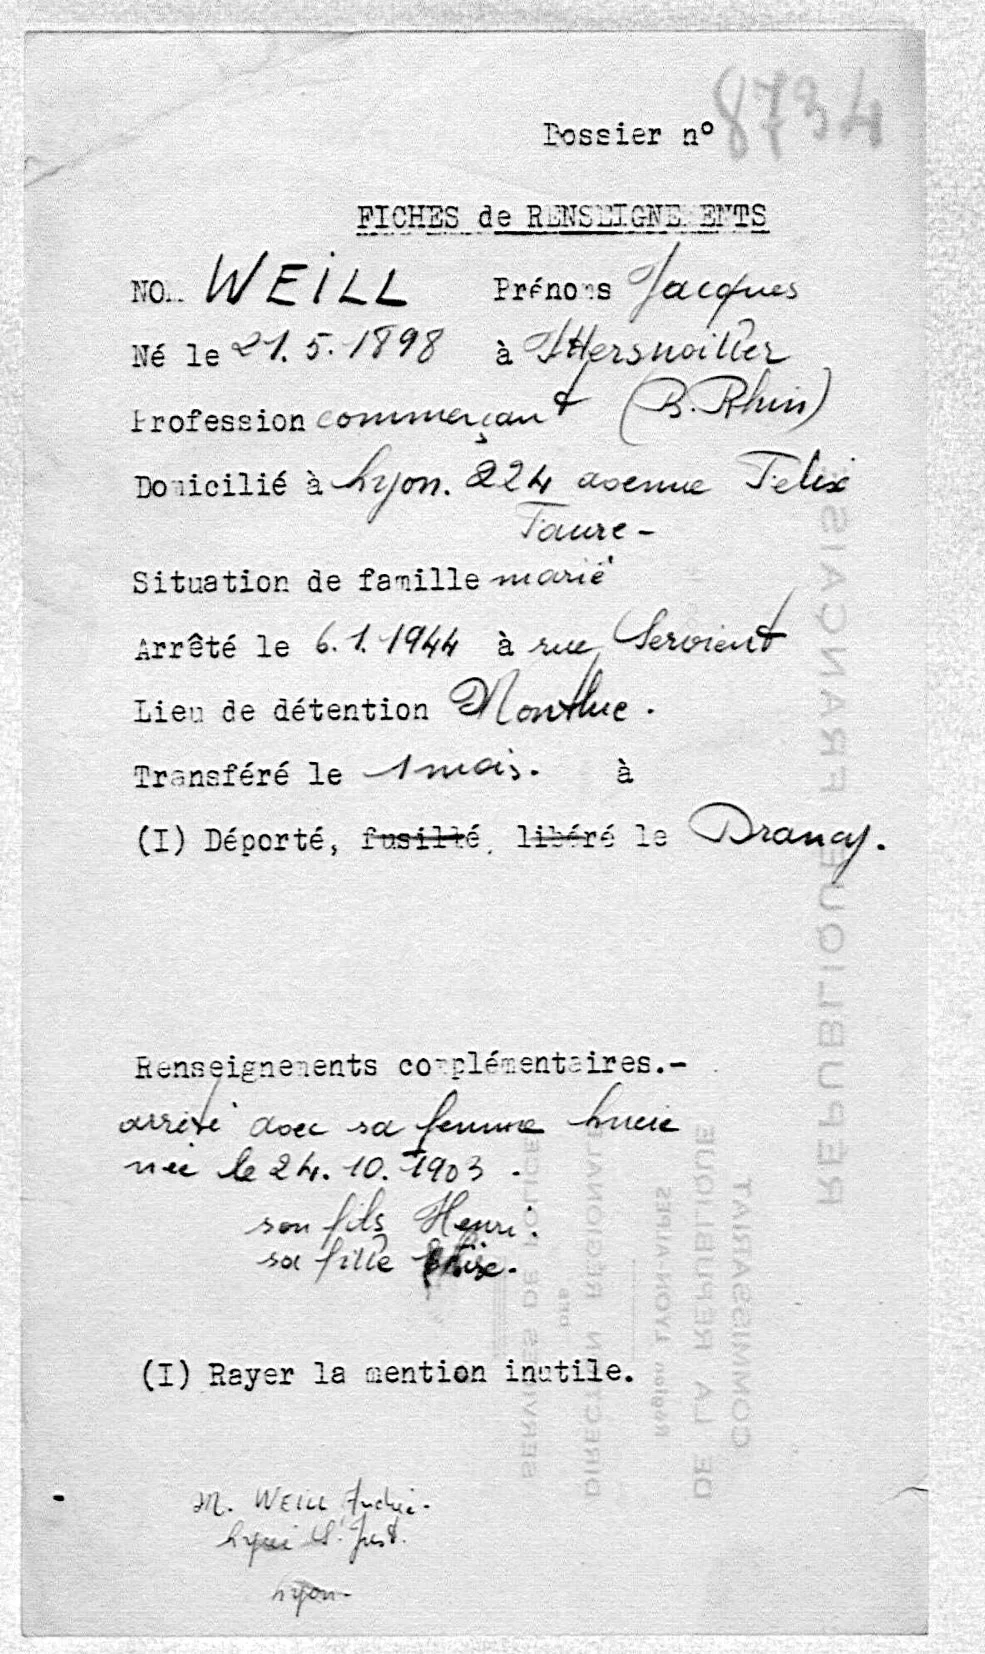 Dossier n° 8734
FICHES de RENSEIGNEMENTS
NOM WEILL Prénoms Jacques
Né le 21.5.1898 à
Profession commerçant (B. Rhin)
Domicilié à Lyon. 224 avenue Felix
Faure -
Situation de famille marié
Arrêté le 6.1.1944 à rue Servient
Lieu de détention Montluc.
Transféré le 1 mois. à
(I) Déporté, fusillé, libéré le Drancy.
Renseignements complémentaires.-
arrêté avec sa femme Lucie
née le 24.10.1903.
son fils Henri.
sa fille
(I) Rayer la mention inutile.
M. WEILL André.
Lycée St. Just.
Lyon-
RÉPUBLIQUE FRANÇAISE
COMMISSARIAT
DE LA RÉPUBLIQUE
Région LYON-ALPES
DIRECTION RÉGIONALE
DES
SERVICES DE POLICE